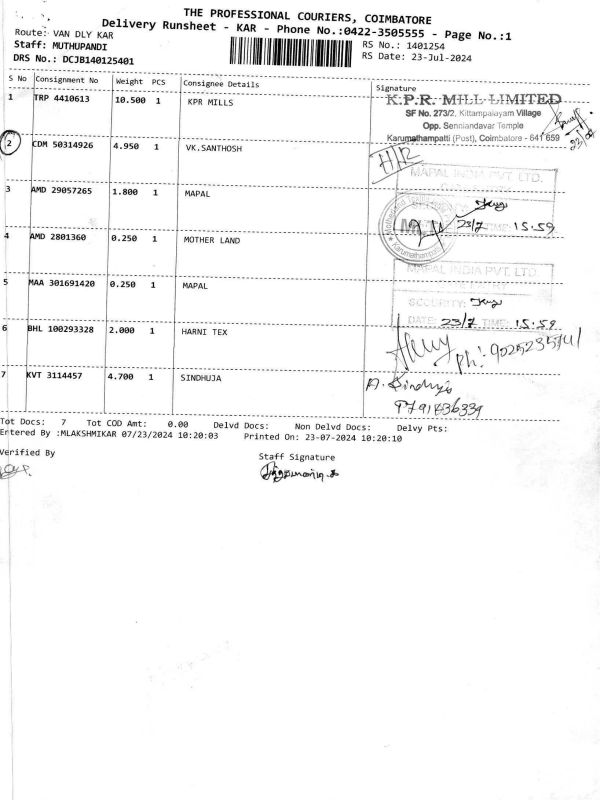 THE PROFESSIONAL COURIERS, COIMBATORE
Delivery Runsheet - KAR - Phone No.:0422-3505555 - Page No.:1
Route: VAN DLY KAR
Staff: MUTHUPANDI
DRS No.: DCJB140125401
RS No.: 1401254
RS Date: 23-Jul-2024
S No Consignment No Weight PCS Consignee Details Signature
1 TRP 4410613 10.500 1 KPR MILLS
K.P.R. MILL LIMITED
SF No. 273/2, Kittampalayam Village
Opp. Senniandavar Temple
Karumathampatti (Post), Coimbatore - 641 659
2 CDM 50314926 4.950 1 VK.SANTHOSH
MAPAL INDIA PVT. LTD.
3 AMD 29057265 1.800 1 MAPAL
23/7 TIME: 15:59
4 AMD 2801360 0.250 1 MOTHER LAND
MAPAL INDIA PVT. LTD.
5 MAA 301691420 0.250 1 MAPAL
SECURITY:
DATE: 23/7 TIME: 15:59
6 BHL 100293328 2.000 1 HARNI TEX
ph: 9025235741
7 KVT 3114457 4.700 1 SINDHUJA
A. Sindhuja
9791836339
Tot Docs: 7 Tot COD Amt: 0.00 Delvd Docs: Non Delvd Docs: Delvy Pts:
Entered By :MLAKSHMIKAR 07/23/2024 10:20:03 Printed On: 23-07-2024 10:20:10
Verified By
Staff Signature